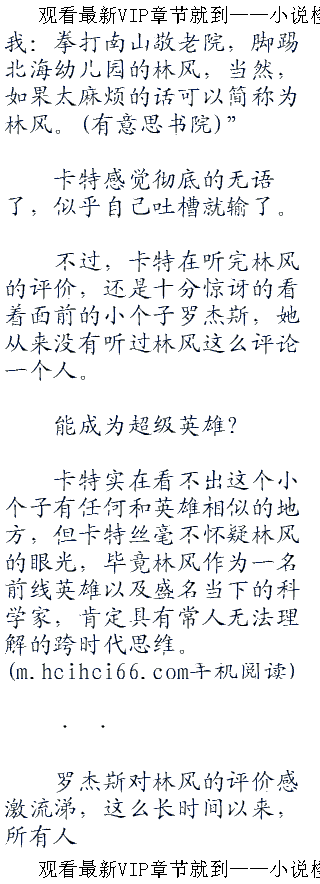 观看最新VIP章节就到——小说
我：拳打南山敬老院，脚踢
北海幼儿园的林风，当然，
如果太麻烦的话可以简称为
林风。(有意思书院)”
卡特感觉彻底的无语
了，似乎自己吐槽就输了。
不过，卡特在听完林风
的评价，还是十分惊讶的看
着面前的小个子罗杰斯，她
从来没有听过林风这么评论
一个人。
能成为超级英雄？
卡特实在看不出这个小
个子有任何和英雄相似的地
方，但卡特丝毫不怀疑林风
的眼光，毕竟林风作为一名
前线英雄以及盛名当下的科
学家，肯定具有常人无法理
解的跨时代思维。
(m.hcihci66.com手机阅读)
. .
罗杰斯对林风的评价感
激流涕，这么长时间以来，
所有人
观看最新VIP章节就到——小说